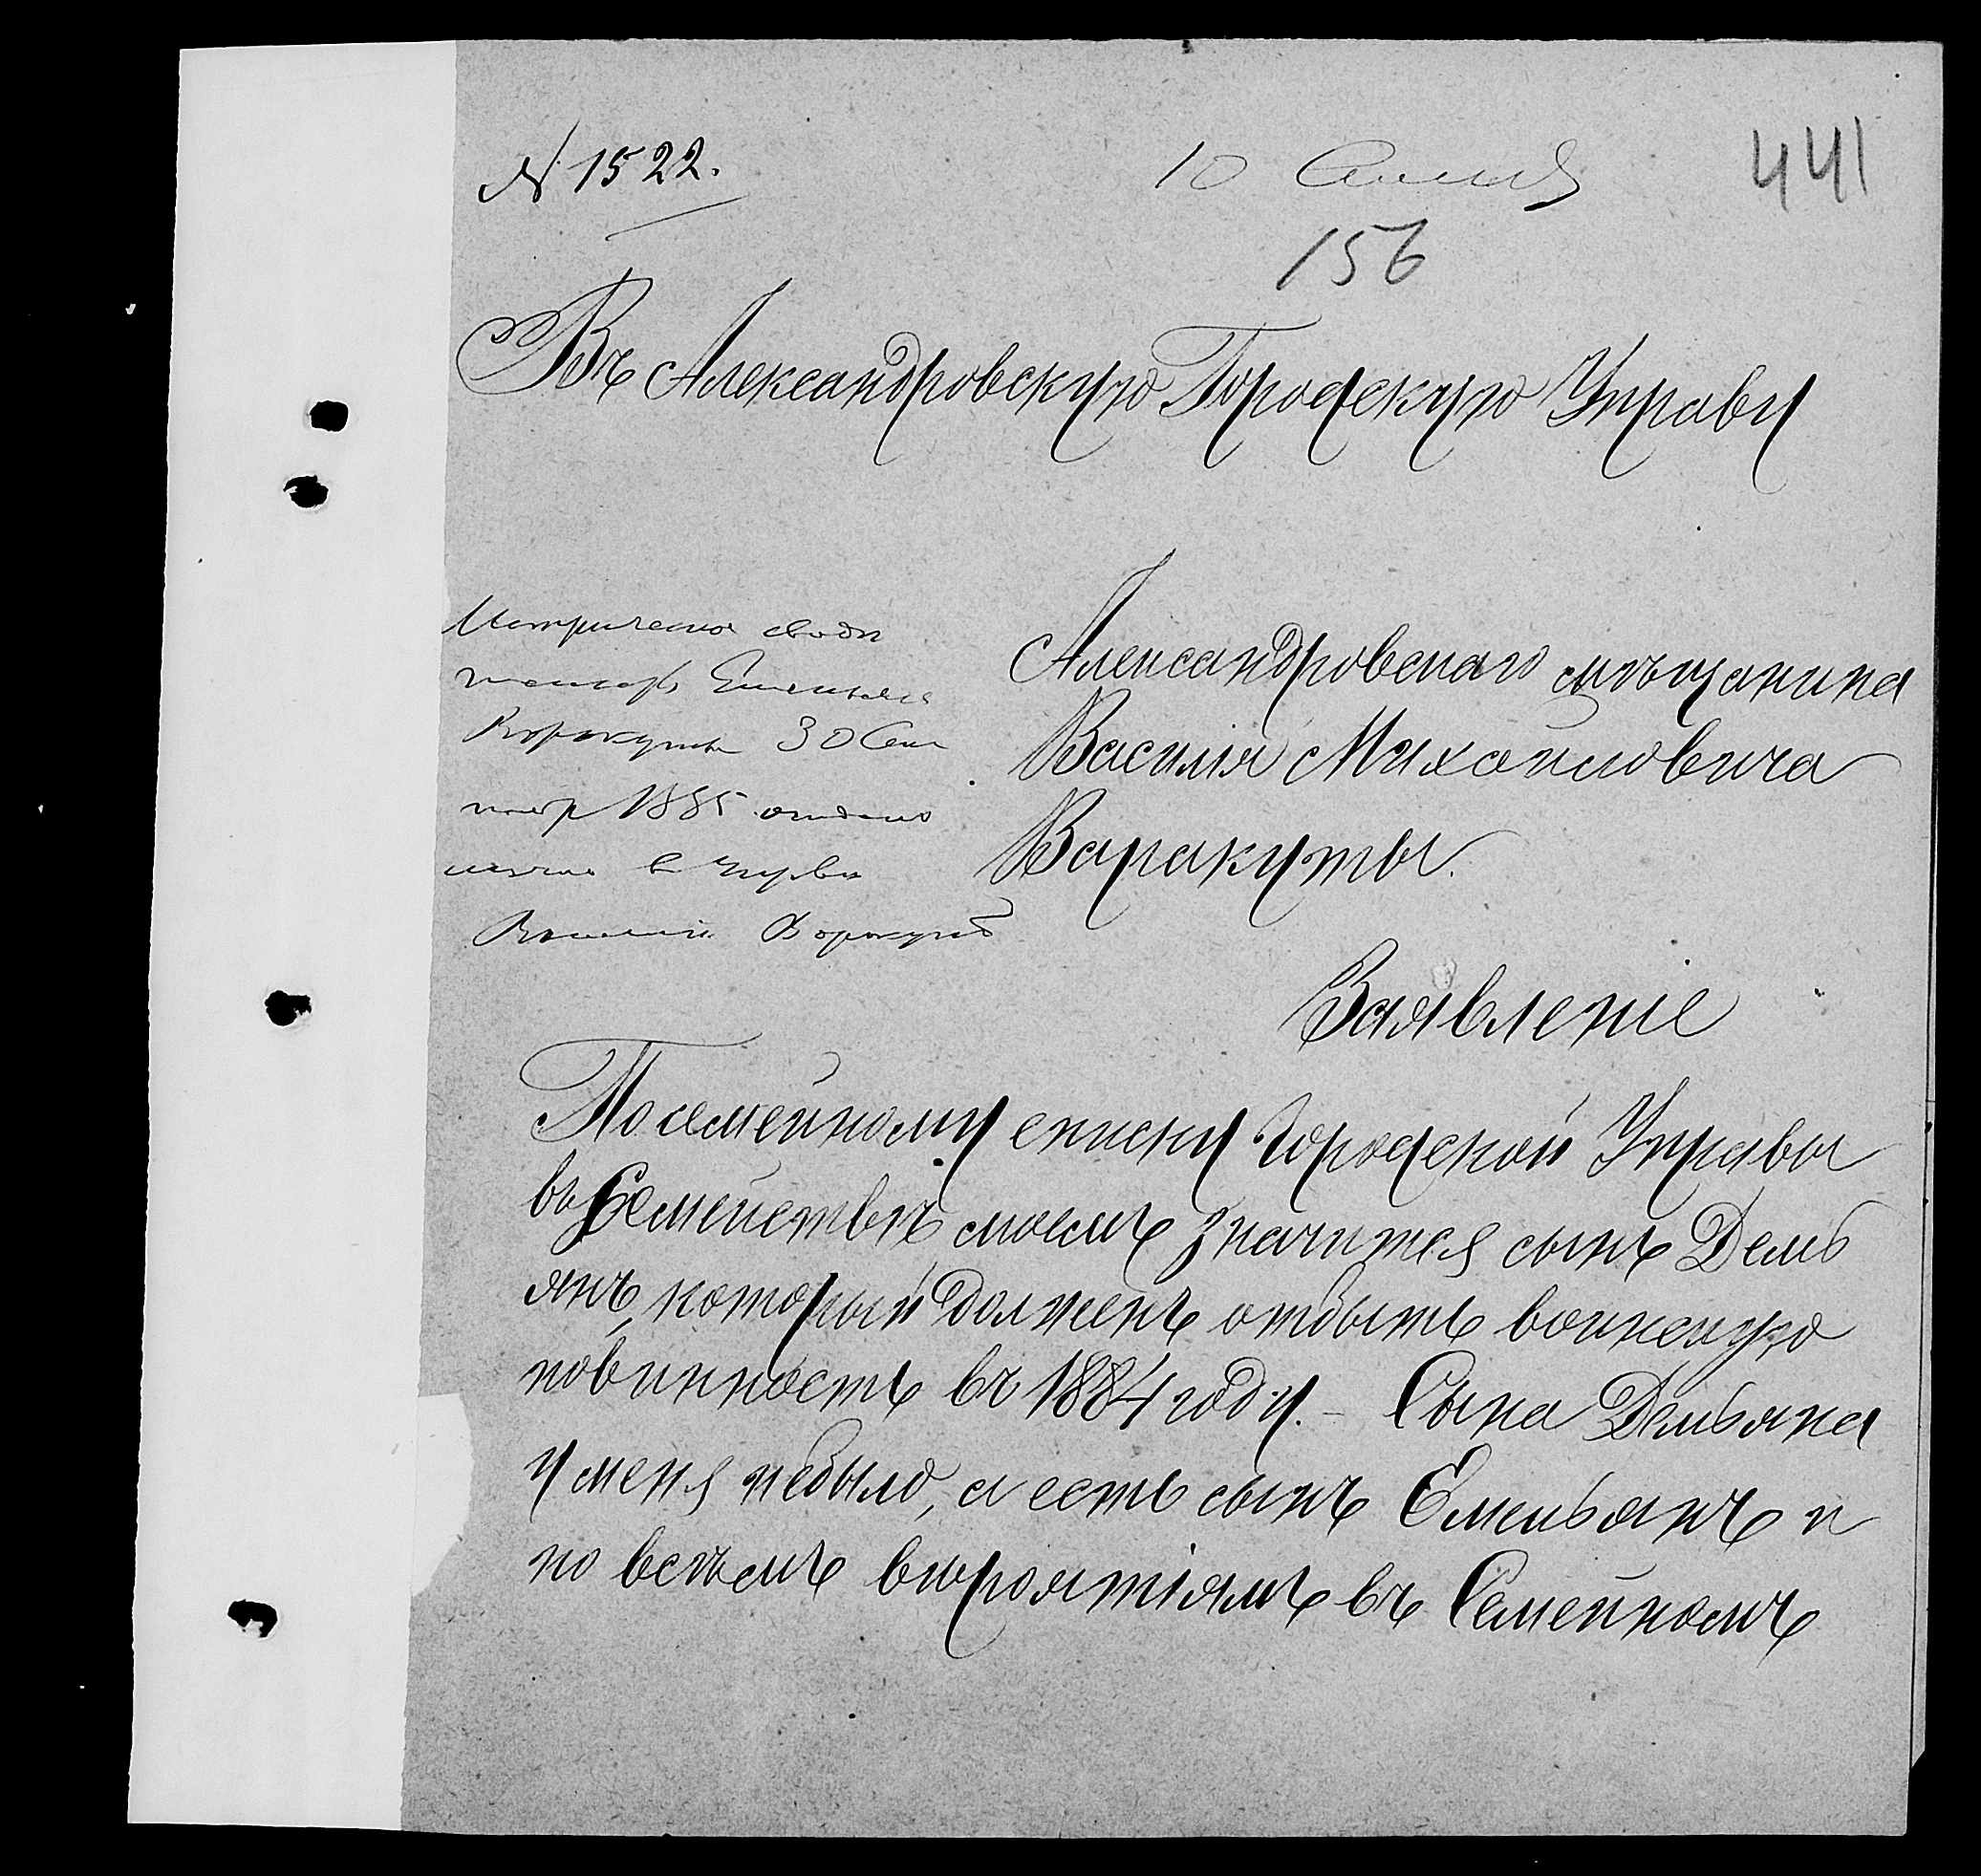 № 1522.
10
441
156
Въ Александровскую Городскую Управу
Метрическое свиде
тельство Емельяна
Воракуты 30 Сен
тября 1885
Василий Воракута
Александровскаго мѣщанина
Василія Михайловича
Варакуты.
Заявленіе
По семейному списку Городской Управы
въ Семействѣ моемъ значится сынъ Демь
янъ, который долженъ отбыть воинскую
повинность въ 1884 году. - Сына Демьяна
у меня небыло, а есть сынъ Емельянъ и
по всѣмъ вѣроятіямъ въ Семейномъ